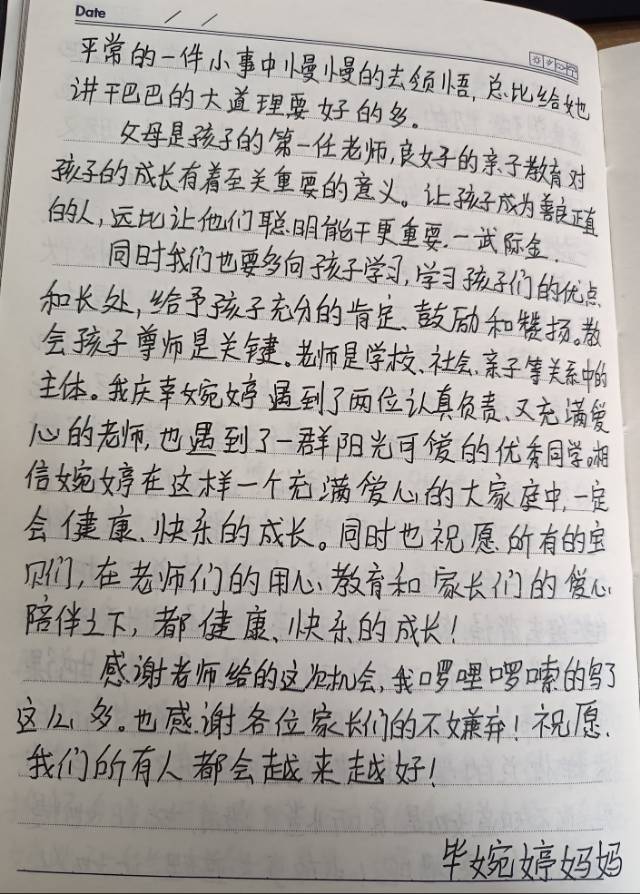 Date / /
平常的一件小事中慢慢的去领悟,总比给她
讲干巴巴的大道理要好的多。
父母是孩子的第一任老师,良好的亲子教育对
孩子的成长有着至关重要的意义。让孩子成为善良正直
的人,远比让他们聪明能干更重要.一武际金.
同时我们也要多向孩子学习,学习孩子们的优点
和长处,给予孩子充分的肯定、鼓励和赞扬。教
会孩子尊师是关键。老师是学校、社会、亲子等关系中的
主体。我庆幸婉婷遇到了两位认真负责、又充满爱
心的老师,也遇到了一群阳光可爱的优秀同学。相
信婉婷在这样一个充满爱心的大家庭中,一定
会健康、快乐的成长。同时也祝愿所有的宝
贝们,在老师们的用心教育和家长们的爱心
陪伴之下,都健康、快乐的成长!
感谢老师给的这次机会,我啰哩啰嗦的写了
这么多。也感谢各位家长们的不嫌弃!祝愿.
我们所有人都会越来越好!
毕婉婷妈妈